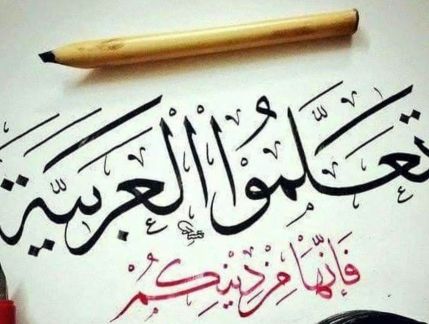 تَعَلَّمُوا الْعَرَبِيَّةَ
فَإِنَّهَا مِنْ دِينِكُمْ